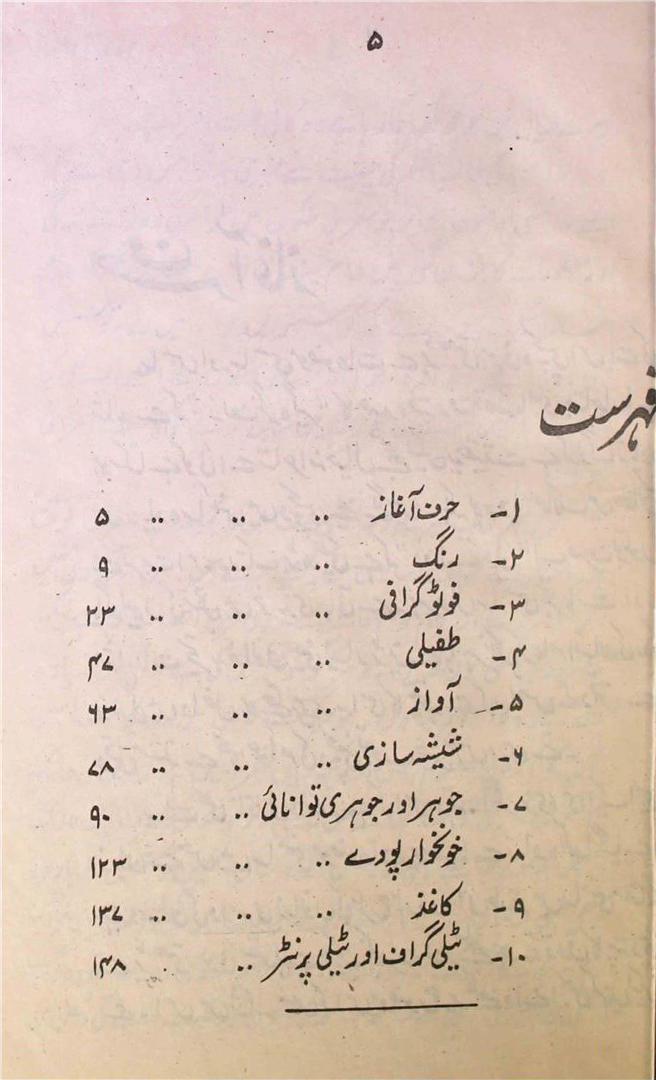 ۵
فہرست
۱- حرف آغاز .. .. .. ۵
۲- رنگ .. .. .. ۹
۳- فوٹوگرافی .. .. .. ۲۳
۴- طفیلی .. .. .. ۴۷
۵- آواز .. .. .. ۶۳
۶- شیشہ سازی .. .. .. ۷۸
۷- جوہر اور جوہری توانائی .. .. ۹۰
۸- خونخوار پودے .. .. .. ۱۲۳
۹- کاغذ .. .. .. ۱۳۷
۱۰- ٹیلی گراف اور ٹیلی پرنٹر .. ۱۴۸